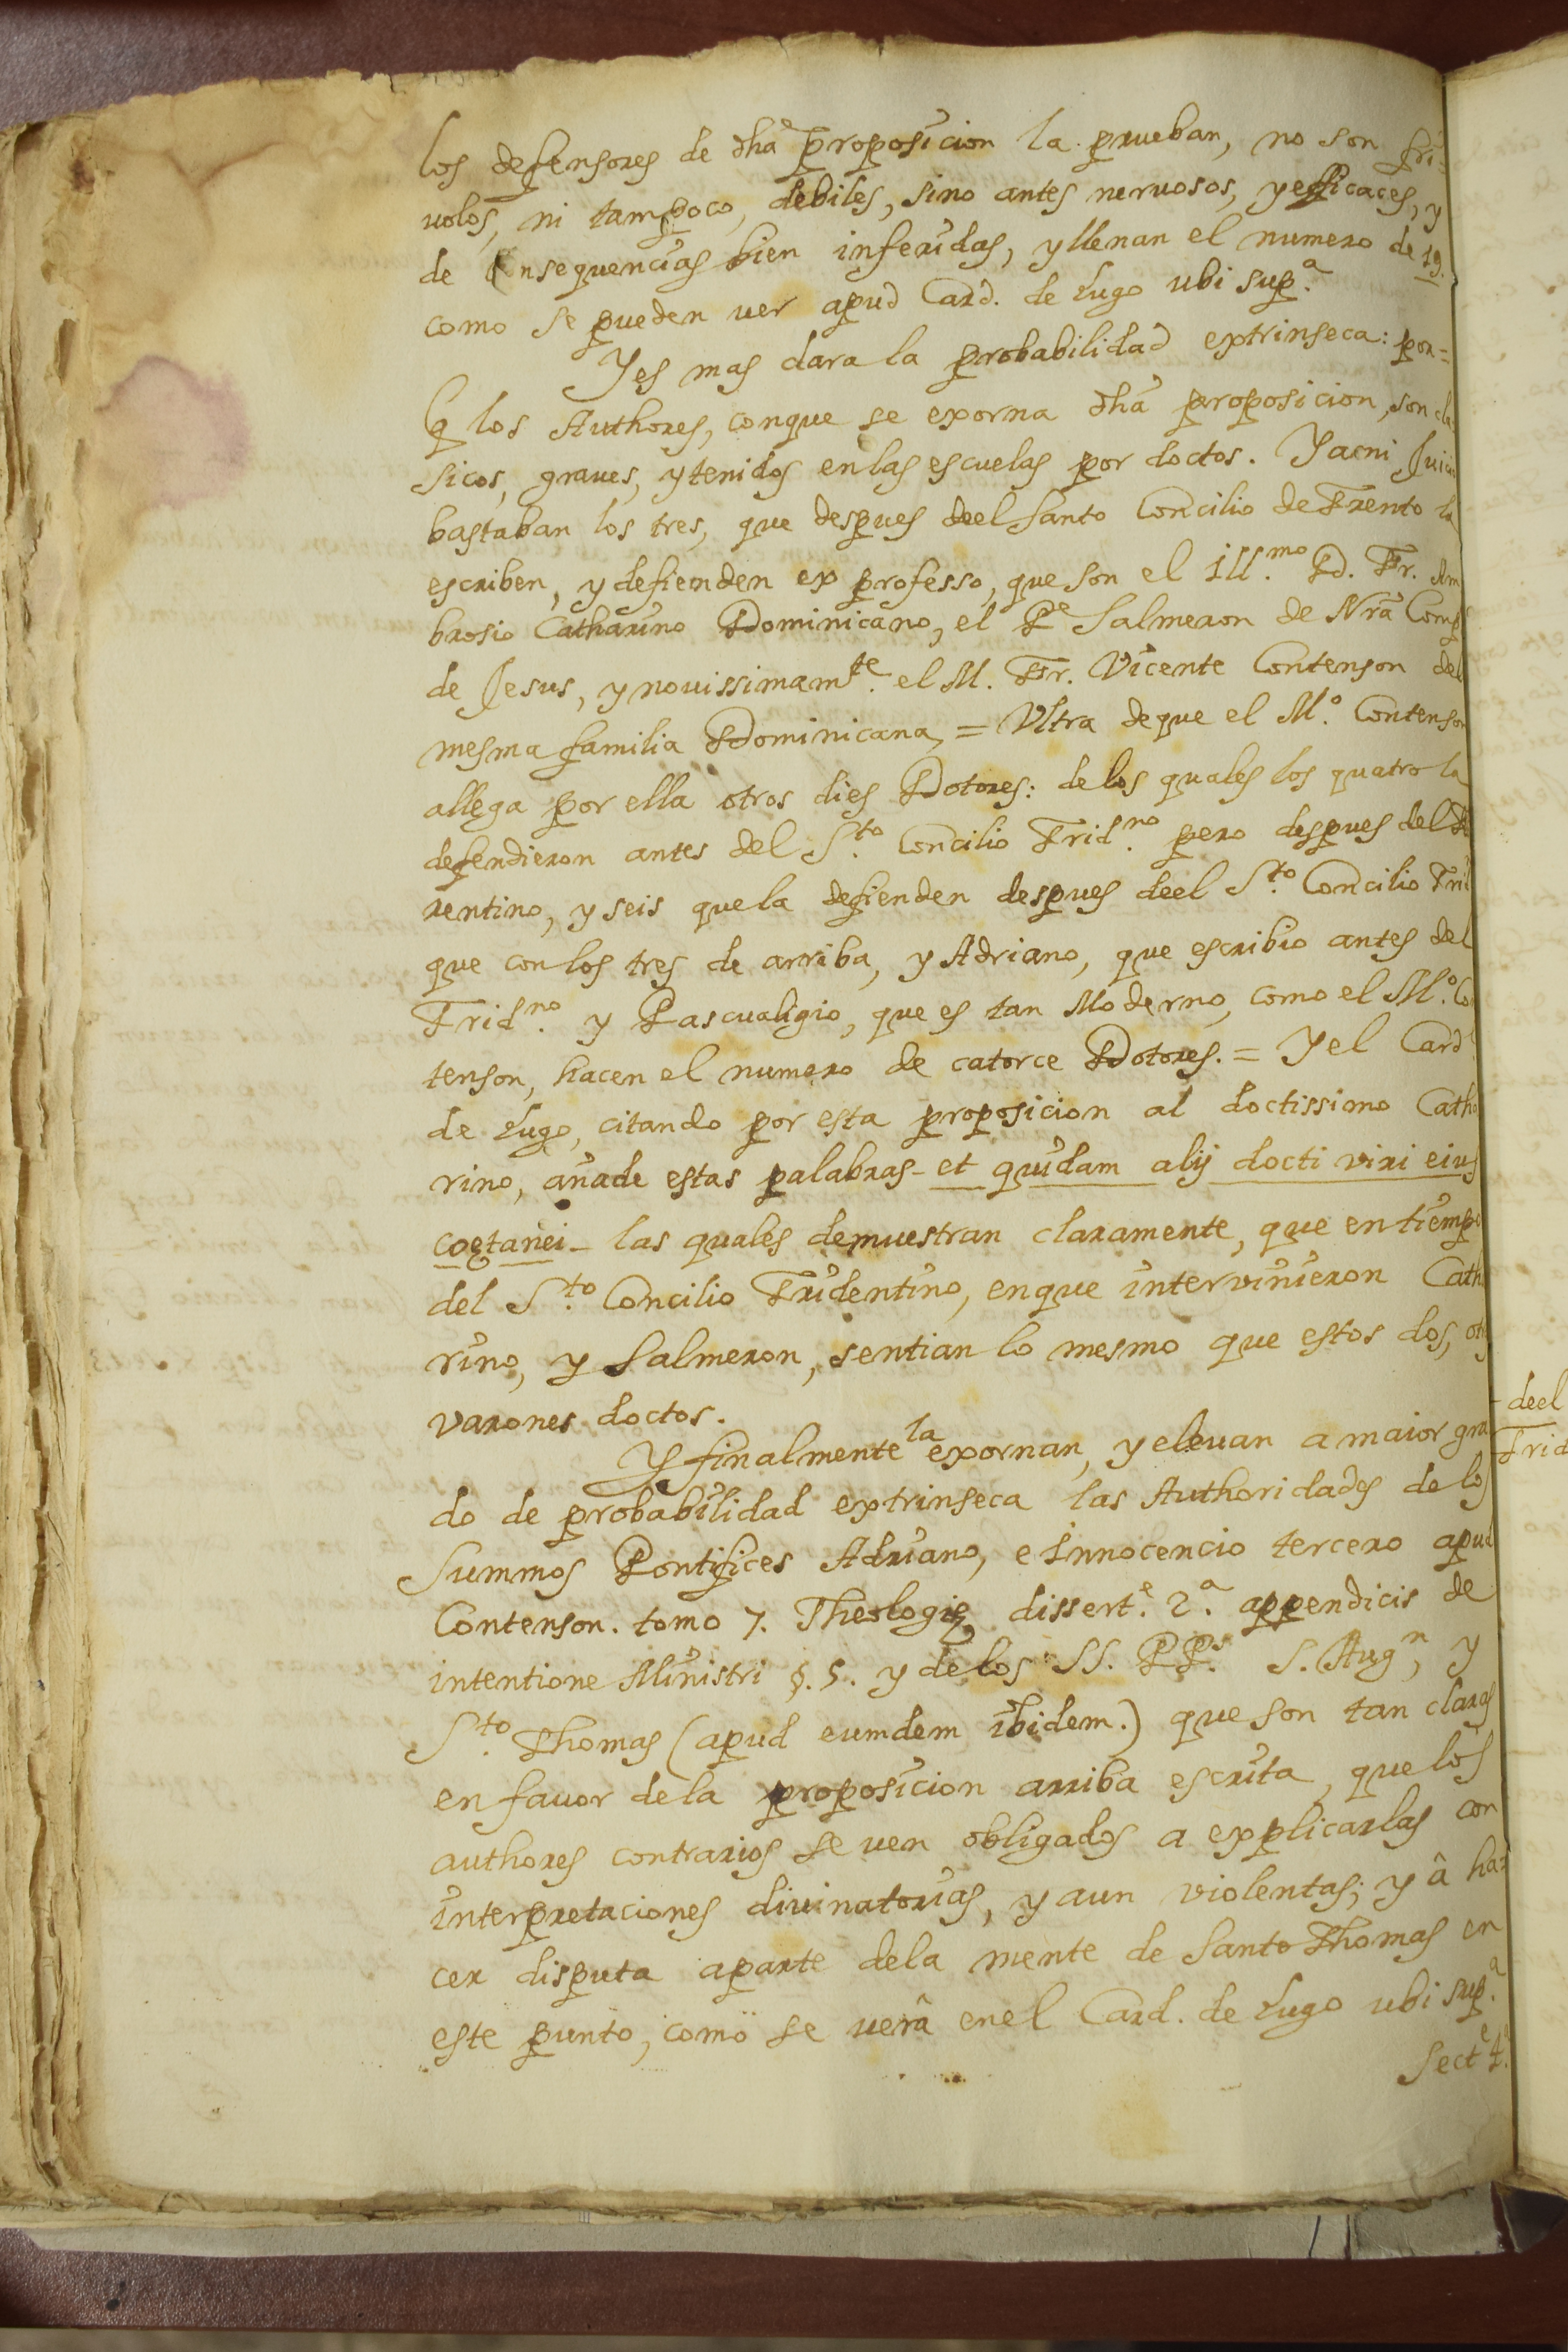 los defensores de dhã proposicion la prueban, no son fri=
volos, ni tampoco, debiles, sino antes nervosos, y efficaces, y
de Consequencias bien inferidas, y llenan el numero de 19.
como se pueden ver apud Card. de Lugo ubi sup.ª
Y es mas clara la probabilidad extrinseca: por=
q los Authores, conque se exorna dhã proposicion, son cla
sicos, graves, y tenidos en las escuelas por doctos. Y a mi Juicio
bastaban los tres, que despues deel Santo Concilio de Trento la
escriben, y defienden ex professo, que son el Ill.mo Dd. Fr. Am
brosio Catharino Dominicano, el Pe Salmeron de Nrã Comp
de Jesus, y novissimamte. el M. Fr. Vicente Contenson del
mesma familia Dominicana, = Ultra deque el M.º Contenson
allega por ella otros dies Dotores: delos quales los quatro la
defendieron antes del S.to Concilio Trid.no pero despues del Flo
rentino, y seis que la defienden despues deel S.to Concilio Trid
que con los tres de arriba, y Adriano, que escribio antes del
Trid.no y Pascualigio, que es tan Moderno, como el M.º Co
tenson, hacen el numero de catorce Dotores. = Y el Card.
de Lugo, citando por esta proposicion al doctissimo Catha
rino, añade estas palabras - et quidam alij docti viri eius
coętanei - las quales demuestran claramente, que en tiempo
del S.to Concilio Tridentino, enque intervinieron Catha
rino, y Salmeron, sentian lo mesmo que estos dos, otros
varones doctos.
Y finalmente la exornan, y elevan a maior gra
do de probabilidad extrinseca las Authoridades de los
Summos Pontifices Adriano, e Innocencio tercero apud
Contenson. tomo 7. Theologię dissert.e 2.ª appendicis de
intentione Ministri §. 5. y de los SS. PP.s S. Augn, y
S.to Thomas (apud eumdem ibidem.) que son tan claras
en favor dela proposicion arriba escrita, que los
authores contrarios se ven obligados a explicarlas con
interpretaciones divinatorias, y aun violentas; y â ha=
cer disputa aparte dela mente de Santo Thomas en
este punto, como se verâ enel Card. de Lugo ubi sup.ª
Sect.e 4.
deel
Trid